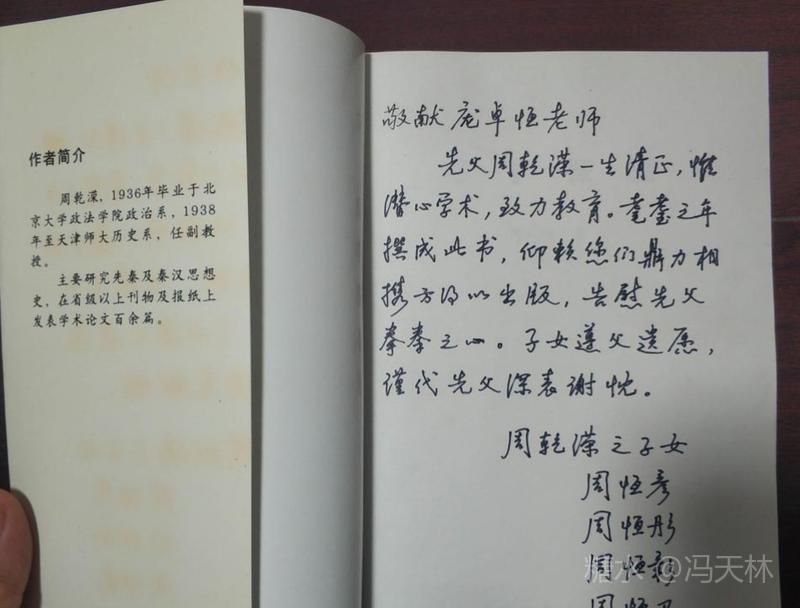 作者简介
周乾溁，1936年毕业于北
京大学政法学院政治系，1938
年至天津师大历史系，任副教
授。
主要研究先秦及秦汉思想
史，在省级以上刊物及报纸上
发表学术论文百余篇。
敬献庞卓恒老师
先父周乾溁一生清正，惟
潜心学术，致力教育。耄耋之年
撰成此书，仰赖您们鼎力相
携方得以出版，告慰先父
拳拳之心。子女遵父遗愿，
谨代先父深表谢忱。
周乾溁之子女
周恒彦
周恒彤
周恒彰
周恒
糖水 @冯天林